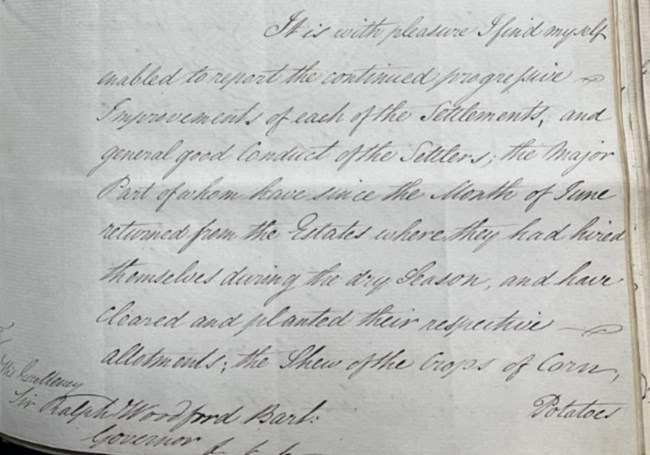 It is with pleasure I find myself
enabled to report the continued progressive
Improvements of each of the Settlements, and
general good Conduct of the Settlers; the Major
Part of whom have since the Month of June
returned from the Estates where they had hired
themselves during the dry Season, and have
cleared and planted their respective
allotments; the Shew of the Crops of Corn,
Potatoes
His Excellency
Sir Ralph Woodford Bart:
Governor